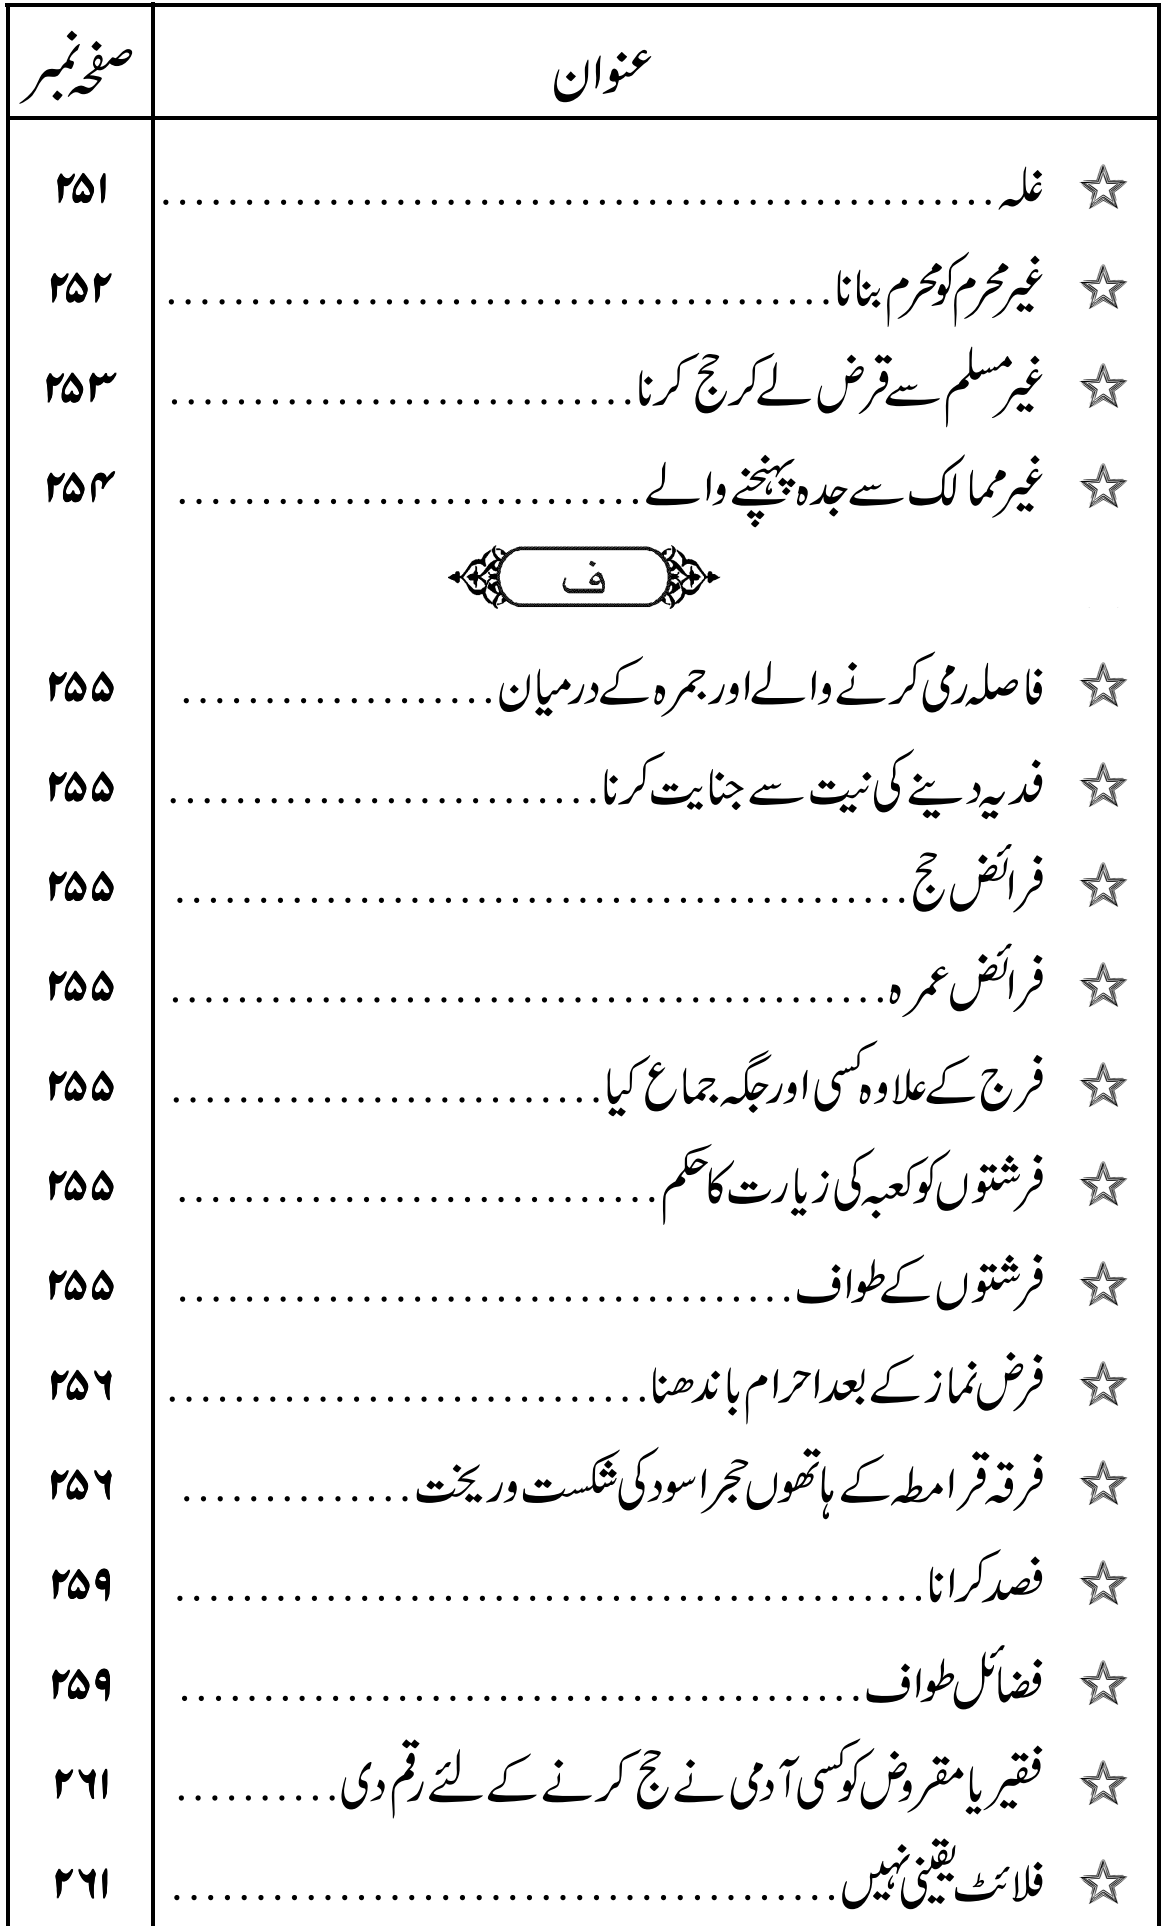 عنوان صفحہ نمبر
☆ غلہ .................................................. ۲۵۱
☆ غیر محرم کو محرم بنانا ........................................ ۲۵۲
☆ غیر مسلم سے قرض لے کر حج کرنا ............................ ۲۵۳
☆ غیر ممالک سے جدہ پہنچنے والے ............................ ۲۵۴
ف
☆ فاصلہ رمی کرنے والے اور جمرہ کے درمیان ................... ۲۵۵
☆ فدیہ دینے کی نیت سے جنایت کرنا .......................... ۲۵۵
☆ فرائض حج ............................................ ۲۵۵
☆ فرائض عمرہ ........................................... ۲۵۵
☆ فرج کے علاوہ کسی اور جگہ جماع کیا .......................... ۲۵۵
☆ فرشتوں کو کعبہ کی زیارت کا حکم ............................. ۲۵۵
☆ فرشتوں کے طواف ..................................... ۲۵۵
☆ فرض نماز کے بعد احرام باندھنا ............................. ۲۵۶
☆ فرقہ قرامطہ کے ہاتھوں حجر اسود کی شکست و ریخت .............. ۲۵۶
☆ فصد کرانا ............................................. ۲۵۹
☆ فضائل طواف ......................................... ۲۵۹
☆ فقیر یا مقروض کو کسی آدمی نے حج کرنے کے لئے رقم دی .......... ۲۶۱
☆ فلائٹ یقینی نہیں ........................................ ۲۶۱